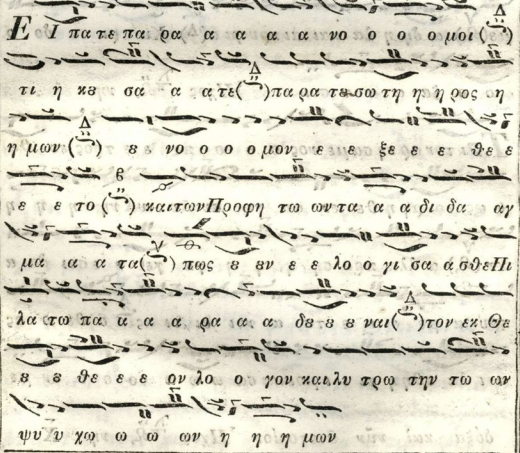 ΕΙ πα τε πα ρα α α α α νο ο ο ο μοι (Δ)
τι η κȣ σα α α τε (Δ) πα ρα τȣ σω τη η η ρος η
η μων (Δ) ȣ ε νο ο ο ο μον ε ε ξε ε ε ε θε ε
ε ε το (β) και των Προφη τω ων τα α α δι δα αγ
μα α α τα (γ) πως ȣ ȣν ε ε λο ο γι σα α σθε Πι
λα τω πα α α α ρα α α δȣ ȣ ȣ ναι (Δ) τον εκ Θε
ȣ ȣ θε ε ε ε ον λο ο γον και λυ τρω την τω ων
ψυ υ χω ω ω ων η η η μων